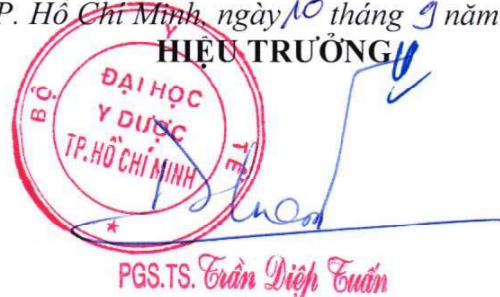 P. Hồ Chí Minh, ngày 10 tháng 9 năm
HIỆU TRƯỞNG
BỘ Y TẾ
ĐẠI HỌC
Y DƯỢC
TP.HỒ CHÍ MINH
PGS.TS. Trần Diệp Tuấn